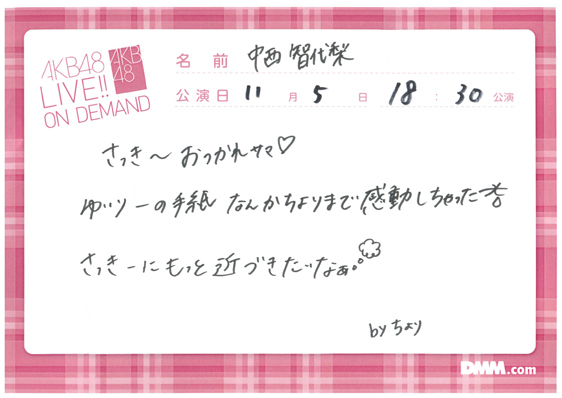 AKB48
LIVE!!
ON DEMAND
AKB
48
名前 中西智代梨
公演日 11月5日 18:30公演
さっき〜おつかれサマ♡
ゆいりーの手紙 なんかちよりまで感動しちゃった
さっきーにもっと近づきたいなぁ。
by ちより
DMM.com